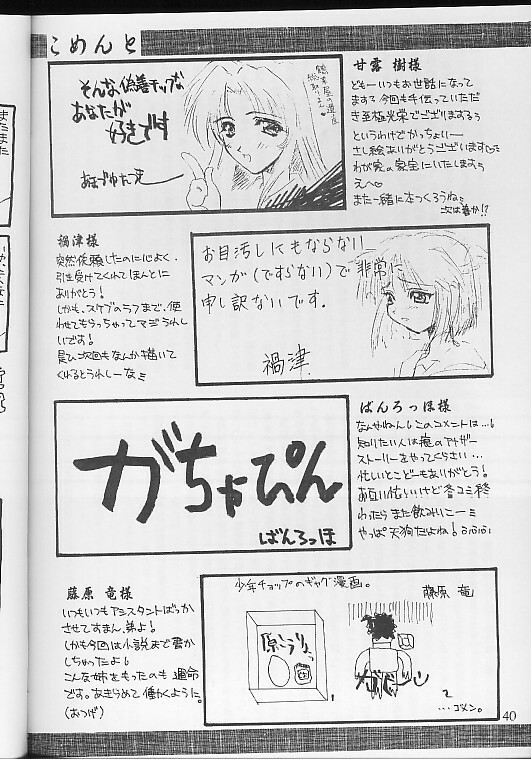 こめんと
甘露 樹様
どもーいつもお世話になって
ますっ今回も手伝っていただ
き至極光栄でございまするぅ
というわけでかっちょいー
さし絵ありがとうございます♡
わが家の家宝にいたしますぅ
えへ♡
また一緒に本つくろうねぇ
次は春か!?
そんな、偽善チップな
あなたが
好きです
あまづゆたつき
禍津様
突然依頼したのに心よく、
引き受けてくれてほんとに
ありがとう!
しかも、スケブのラフまで、使
わせてもらっちゃってマジうれし
いです!
是ひ次回もなんか描いて
くれるとうれしーなミ
お目汚しにもならない
マンガ(ですらない)で非常に
申し訳ないです.
禍津
ばんろっほ様
なんやねん!このコメントは…!
知りたい人は痕のアナザー
ストーリーをやってくらさい…
忙しいとこどーもありがとう!
お互い忙しいけど冬コミ終
わったらまた飲みにいこーミ
やっぱ天狗だよね!ふふふふ
がちゃぴん
ばんろっほ
藤原 竜様
いつもいつもアシスタントばっか
させてすまん、弟よ!
しかも今回は小説まで書か
しちゃったよ!
こんな姉をもったのも運命
です。あきらめて働くように。
(おつげ)
少年チョップのギャグ漫画。
藤原 竜
1
ガバーン
2
…ゴメン。
40